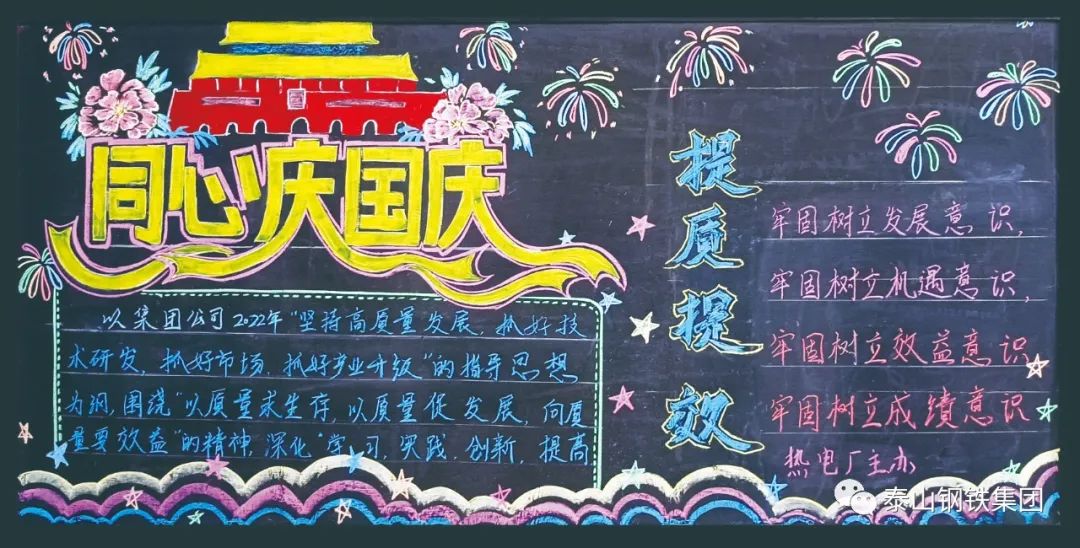 同心庆国庆
以集团公司2022年"坚持高质量发展、抓好技
术研发,抓好市场、抓好产业升级"的指导思想
为纲,围绕"以质量求生存,以质量促发展,向质
量要效益"的精神,深化"学习、实践、创新、提高
提质提效
牢固树立发展意识,
牢固树立机遇意识,
牢固树立效益意识
牢固树立成绩意识
热电厂主办
泰山钢铁集团